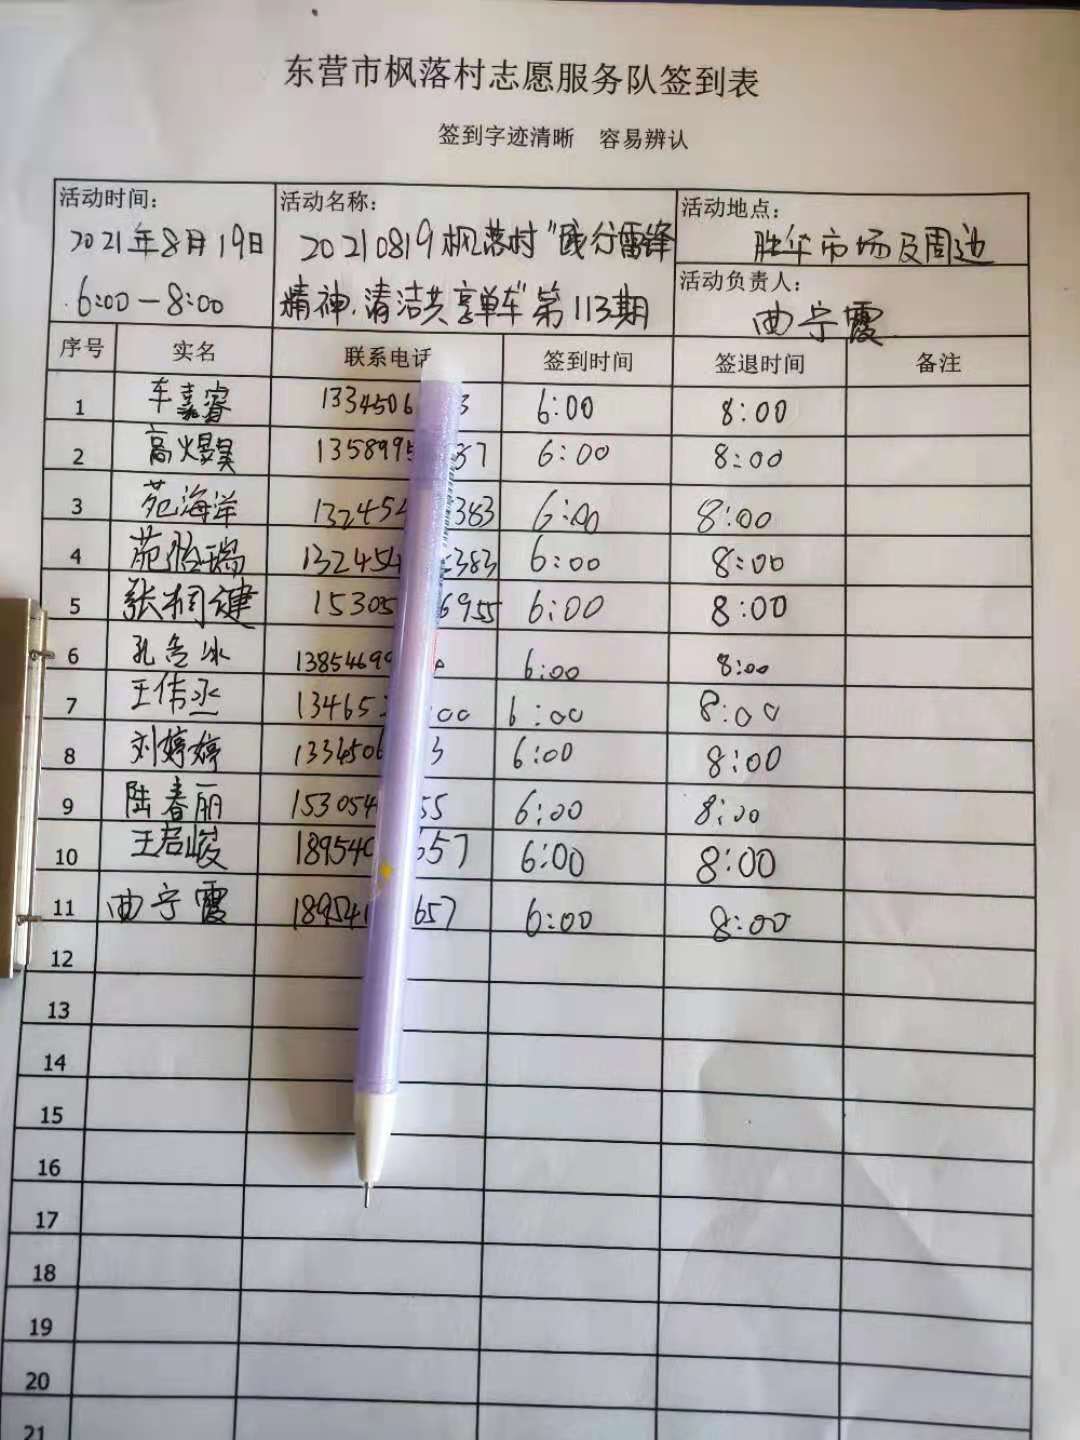 东营市枫落村志愿服务队签到表
签到字迹清晰 容易辨认
活动时间: 2021年8月19日
6:00-8:00
活动名称: 20210819枫落村"践行雷锋
精神.清洁共享单车"第113期
活动地点: 胜华市场及周边
活动负责人: 曲宁霞
序号 实名 联系电话 签到时间 签退时间 备注
1 车嘉睿 1334506 3 6:00 8:00
2 高煜昊 1358995 37 6:00 8:00
3 苑海洋 132454 383 6:00 8:00
4 苑 瑞 132454 383 6:00 8:00
5 张桐健 15305 6955 6:00 8:00
6 孔 冰 13854699 6:00 8:00
7 王传丞 134652 00 6:00 8:00
8 刘婷婷 1334506 3 6:00 8:00
9 陆春丽 153054 55 6:00 8:00
10 王君峻 189540 657 6:00 8:00
11 曲宁霞 189541 657 6:00 8:00
12
13
14
15
16
17
18
19
20
21